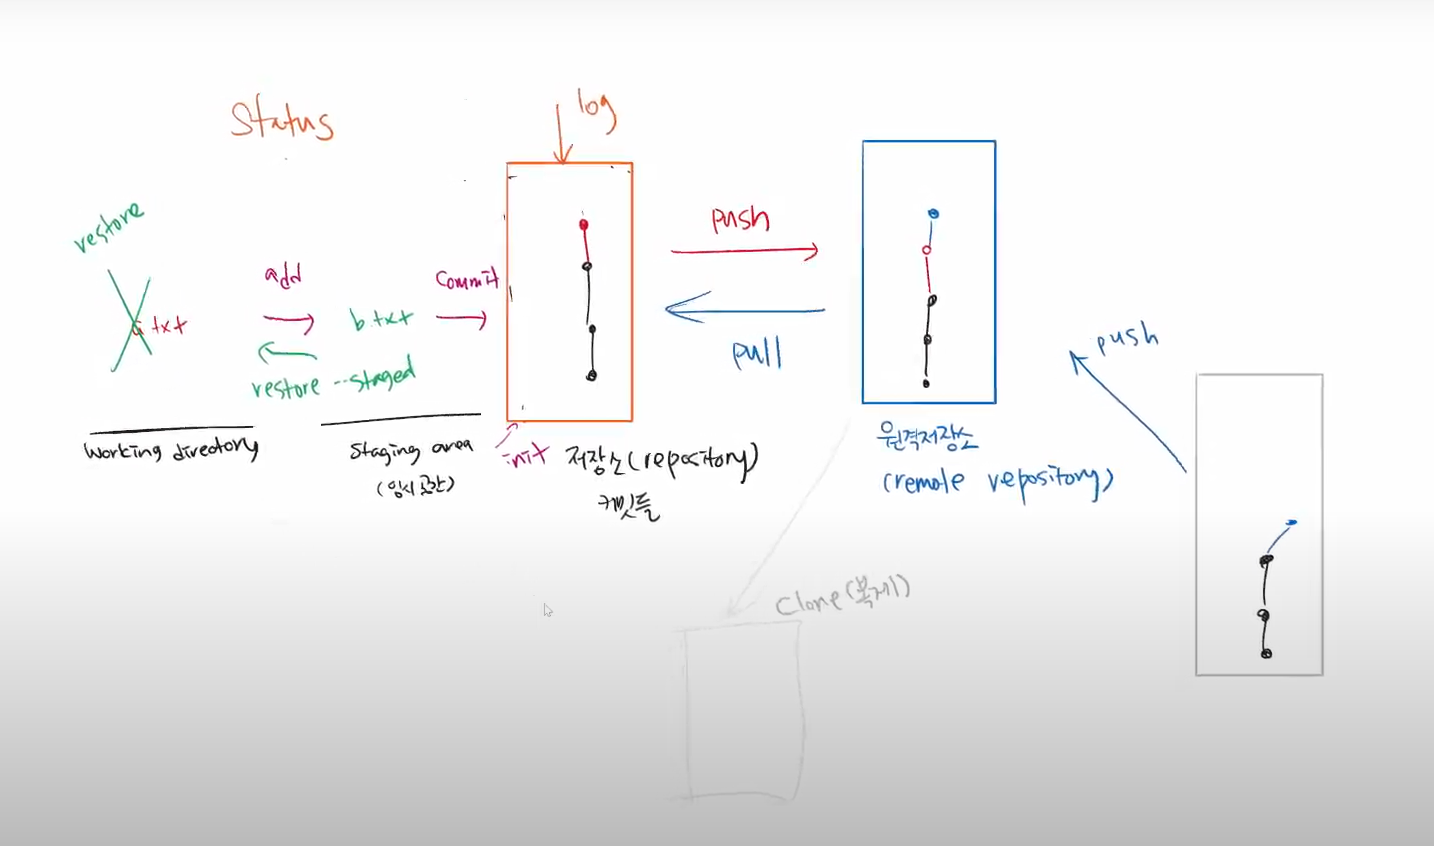 Status
log
restore
a.txt
add
b.txt
commit
restore --staged
push
pull
push
working directory
Staging area
(임시공간)
init
저장소(repository)
커밋들
원격저장소
(remote repository)
Clone(복제)